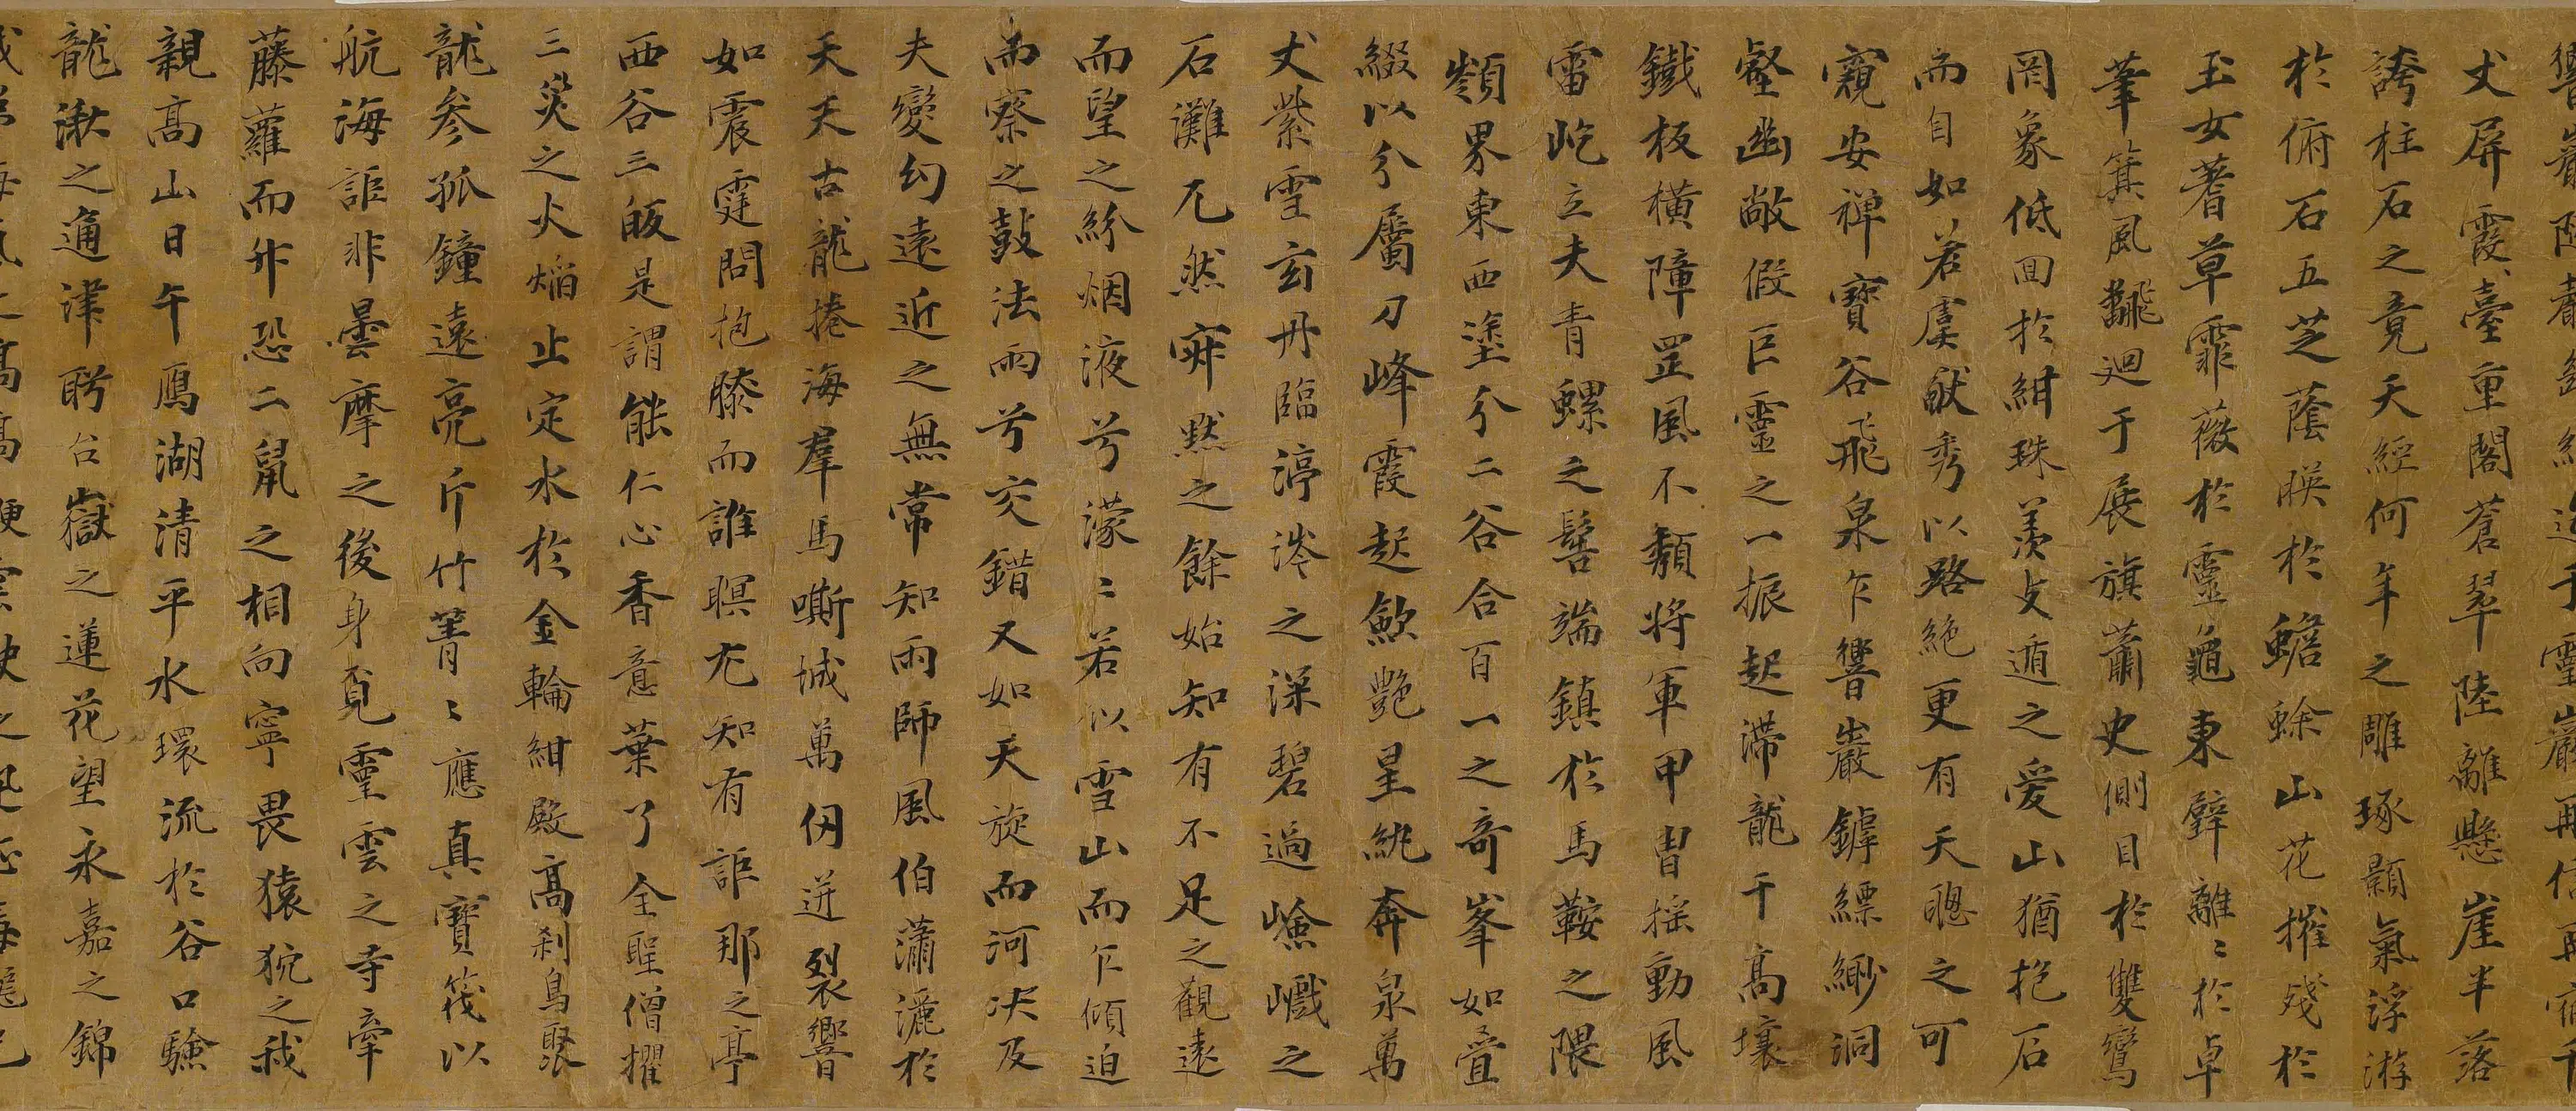 丈屏霞臺重閣蒼翠陸離懸崖半落
誇柱石之竟天經何年之雕琢顥氣浮游
於俯石五芝蔭暎於蟾蜍山花摧殘於
玉女蓍草霏薇於靈龜東壁離〻於卓
筆箕風飜迴于展旗蕭史側目於雙鸞
罔象低回於紺珠羨攴遁之愛山猶抱石
而自如若虞猷秀以路絕更有天聰之可
窺安禪寶谷飛泉乍響巖鏬縹緲洞
壑幽敞假巨靈之一振起滯龍于高壤
鐵板橫障罡風不頹將軍甲冑搖動風
雷屹立夫青螺之髻端鎮於馬鞍之隈
嶺界東西塗分二谷合百一之奇峯如疊
綴以分屬刀峰霞起歙艷星純奔泉萬
丈紫雪玄丹臨渟涔之深碧過嶮巇之
石灘兀然寂默之餘始知有不足之觀遠
而望之紛烟液兮濛〻若似雪山而乍傾迫
而察之鼓法雨兮交錯又如天旋而河决及
夫變幻遠近之無常知雨師風伯瀟灑於
天天古龍捲海羣馬嘶城萬仞迸裂響
如震霆問抱膝而誰瞑尢知有詎那之亭
西谷三皈是謂能仁心香意葉了全聖僧擢
三災之火熖止定水於金輪紺殿高刹鳥聚
龍參孤鐘遠亮斤竹菁〻應真寶筏以
航海詎非曇摩之後身覔靈雲之寺牽
藤蘿而升恐二鼠之相向寧畏猿狖之我
親高山日午鴈湖清平水環流於谷口驗
龍湫之通津盻台嶽之蓮花望永嘉之錦